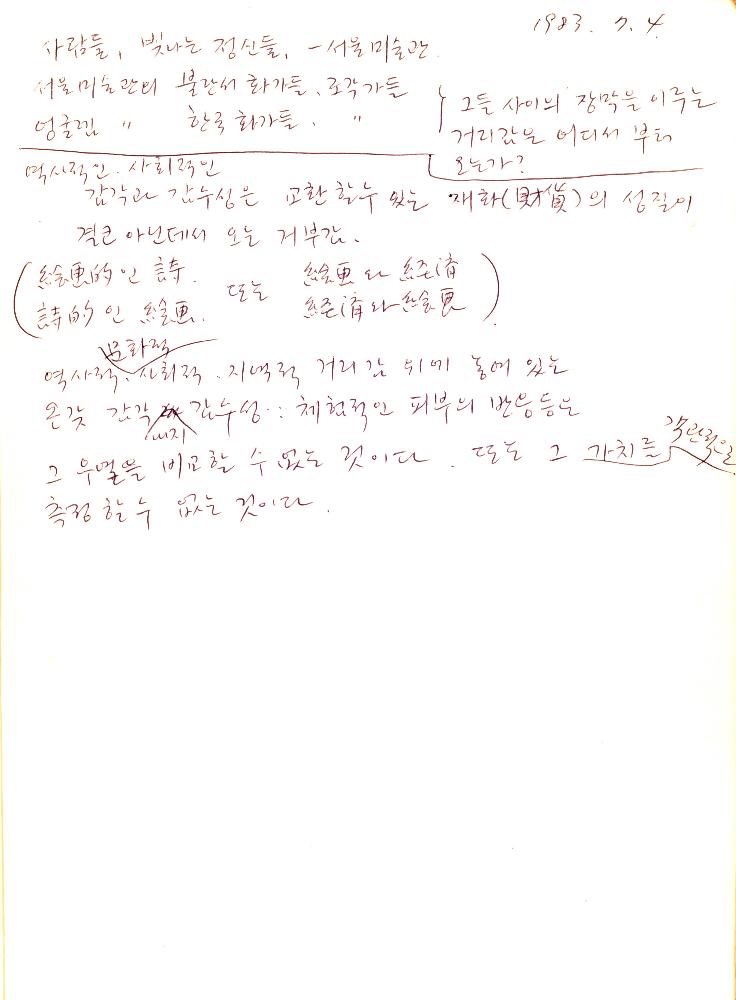 1983. 7. 4
사람들, 빛나는 정신들, - 서울미술관
서울미술관의 불란서 화가들. 조각가들
엉굴렘 〃 한국화가들. 〃
그들 사이의 장막을 이루는
거리감은 어디서 부터
오는가?
역사적인. 사회적인
감각과 감수성은 교환할수 있는 재화(財貨)의 성질이
결코 아닌데서 오는 거부감.
(絵画的인 詩. 또는 絵画와 経済
詩的인 絵画. 経済와 絵画)
문화적
역사적. 사회적. 지역적 거리감 위에 놓여 있는
온갖 감각 감수성‥: 체험적인 피부의 반응등은
내지
그 우열을 비교할 수 없는 것이다. 또는 그 가치를 객관적으로
측정할수 없는 것이다.